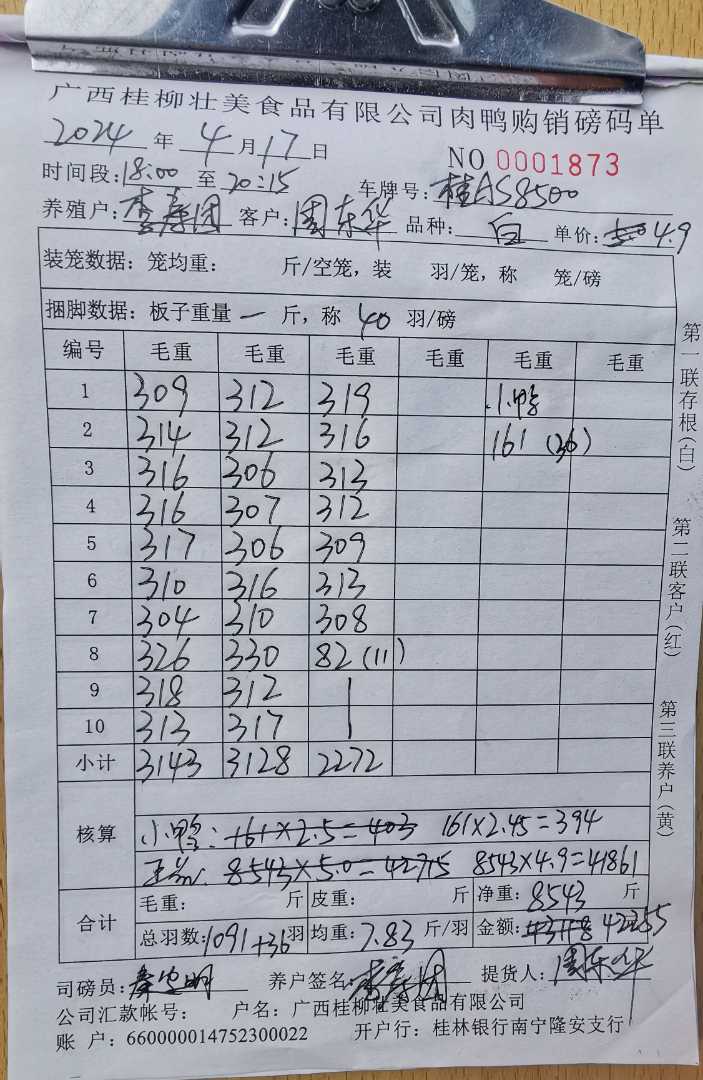 广西桂柳壮美食品有限公司肉鸭购销磅码单
2024 年 4 月 17 日 NO 0001873
时间段: 18:00 至 20:15 车牌号: 桂AS8500
养殖户: 李寿团 客户: 周东华 品种: 白 单价: 5.0 4.9
装笼数据: 笼均重: 斤/空笼, 装 羽/笼, 称 笼/磅
捆脚数据: 板子重量 一 斤, 称 40 羽/磅
编号 毛重 毛重 毛重 毛重 毛重 毛重
1 309 312 319 小鸭
2 314 312 316 161 (36)
3 316 306 313
4 316 307 312
5 317 306 309
6 310 316 313
7 304 310 308
8 326 330 82 (11)
9 318 312 |
10 313 317 |
小计 3143 3128 2272
核算
小鸭: 161×2.5=403 161×2.45=394
正品 8543×5.0=42715 8543×4.9=41861
合计
毛重: 斤 皮重: 斤 净重: 8543 斤
总羽数: 1091+36 羽 均重: 7.83 斤/羽 金额: 43118 42255
司磅员: 养户签名: 李寿团 提货人: 周东华
公司汇款帐号: 户名: 广西桂柳壮美食品有限公司
账 户: 660000014752300022 开户行: 桂林银行南宁隆安支行
第一联存根(白)
第二联客户(红)
第三联养户(黄)